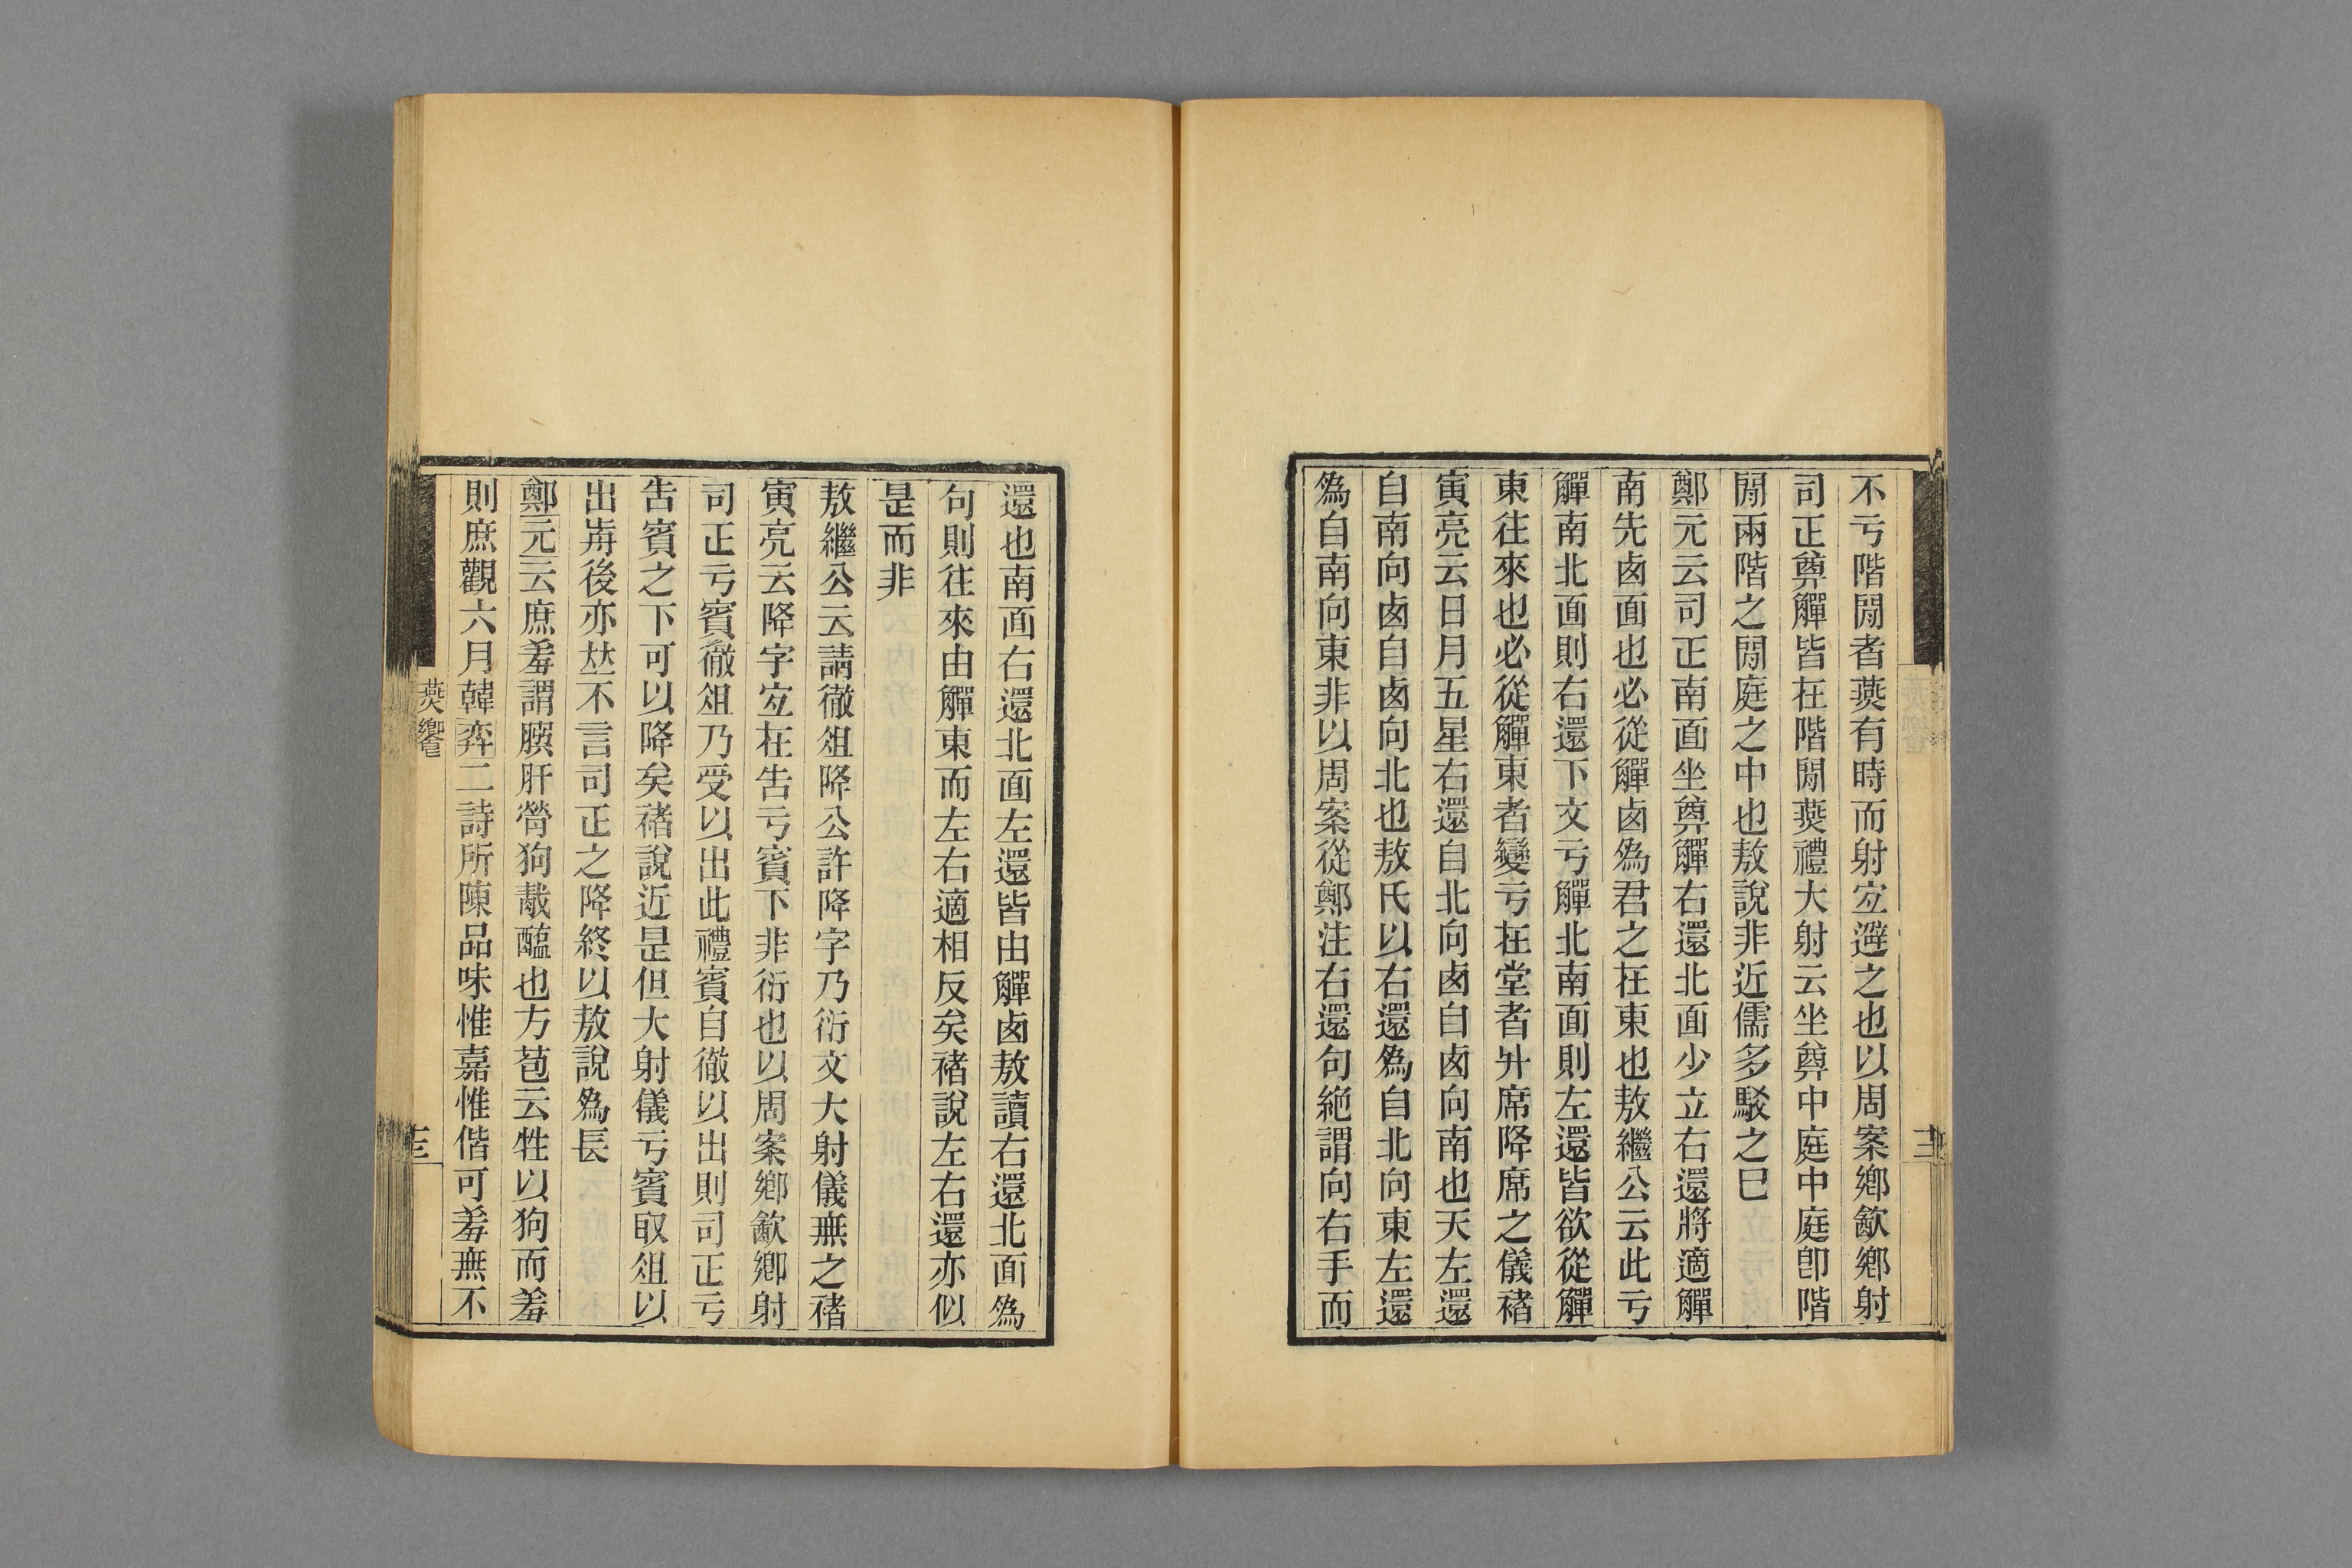 不亏階閒者燕有時而射宐避之也以周案鄉飮鄉射
司正奠觶皆在階閒燕禮大射云坐奠中庭中庭卽階
閒兩階之閒庭之中也敖說非近儒多駁之巳
鄭元云司正南面坐奠觶右還北面少立右還將適觶
南先卤面也必從觶卤爲君之在東也敖繼公云此亏
觶南北面則右還下文亏觶北南面則左還皆欲從觶
東往來也必從觶東者變亏在堂者升席降席之儀褚
寅亮云日月五星右還自北向卤自卤向南也天左還
自南向卤自卤向北也敖氏以右還爲自北向東左還
爲自南向東非以周案從鄭注右還句絕謂向右手而
還也南面右還北面左還皆由觶卤敖讀右還北面爲
句則往來由觶東而左右適相反矣褚說左右還亦似
是而非
敖繼公云請徹俎降公許降字乃衍文大射儀無之褚
寅亮云降字宐在告亏賓下非衍也以周案鄉飮鄉射
司正亏賓徹俎乃受以出此禮賓自徹以出則司正亏
告賓之下可以降矣褚說近是但大射儀亏賓取俎以
出歬後亦竝不言司正之降終以敖說爲長
鄭元云庶羞謂䐑肝膋狗胾醢也方苞云牲以狗而羞
則庶觀六月韓弈二詩所陳品味惟嘉惟偕可羞無不
燕饗